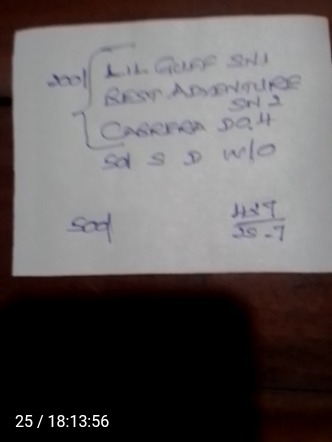 200/ LIL GUFF SN1
BEST ADVENTURE
SN 2
CABRERA DO.4
50/ S D W/O
500/
25 / 18:13:56